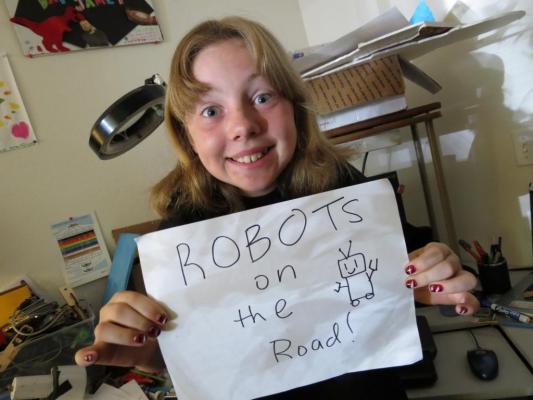 ROBOTS
on
the
Road!